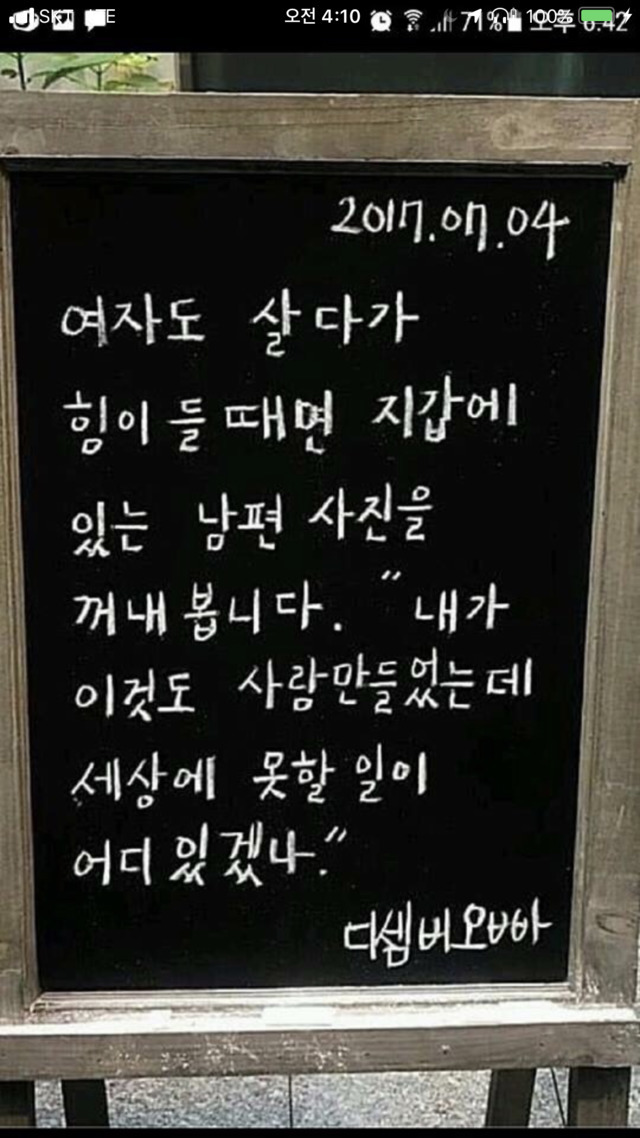 오전 4:10
100%
71%
오후 6:42
2017.07.04
여자도 살다가
힘이 들때면 지갑에
있는 남편 사진을
꺼내 봅니다. "내가
이것도 사람만들었는데
세상에 못할 일이
어디 있겠나."
디셈버오빠